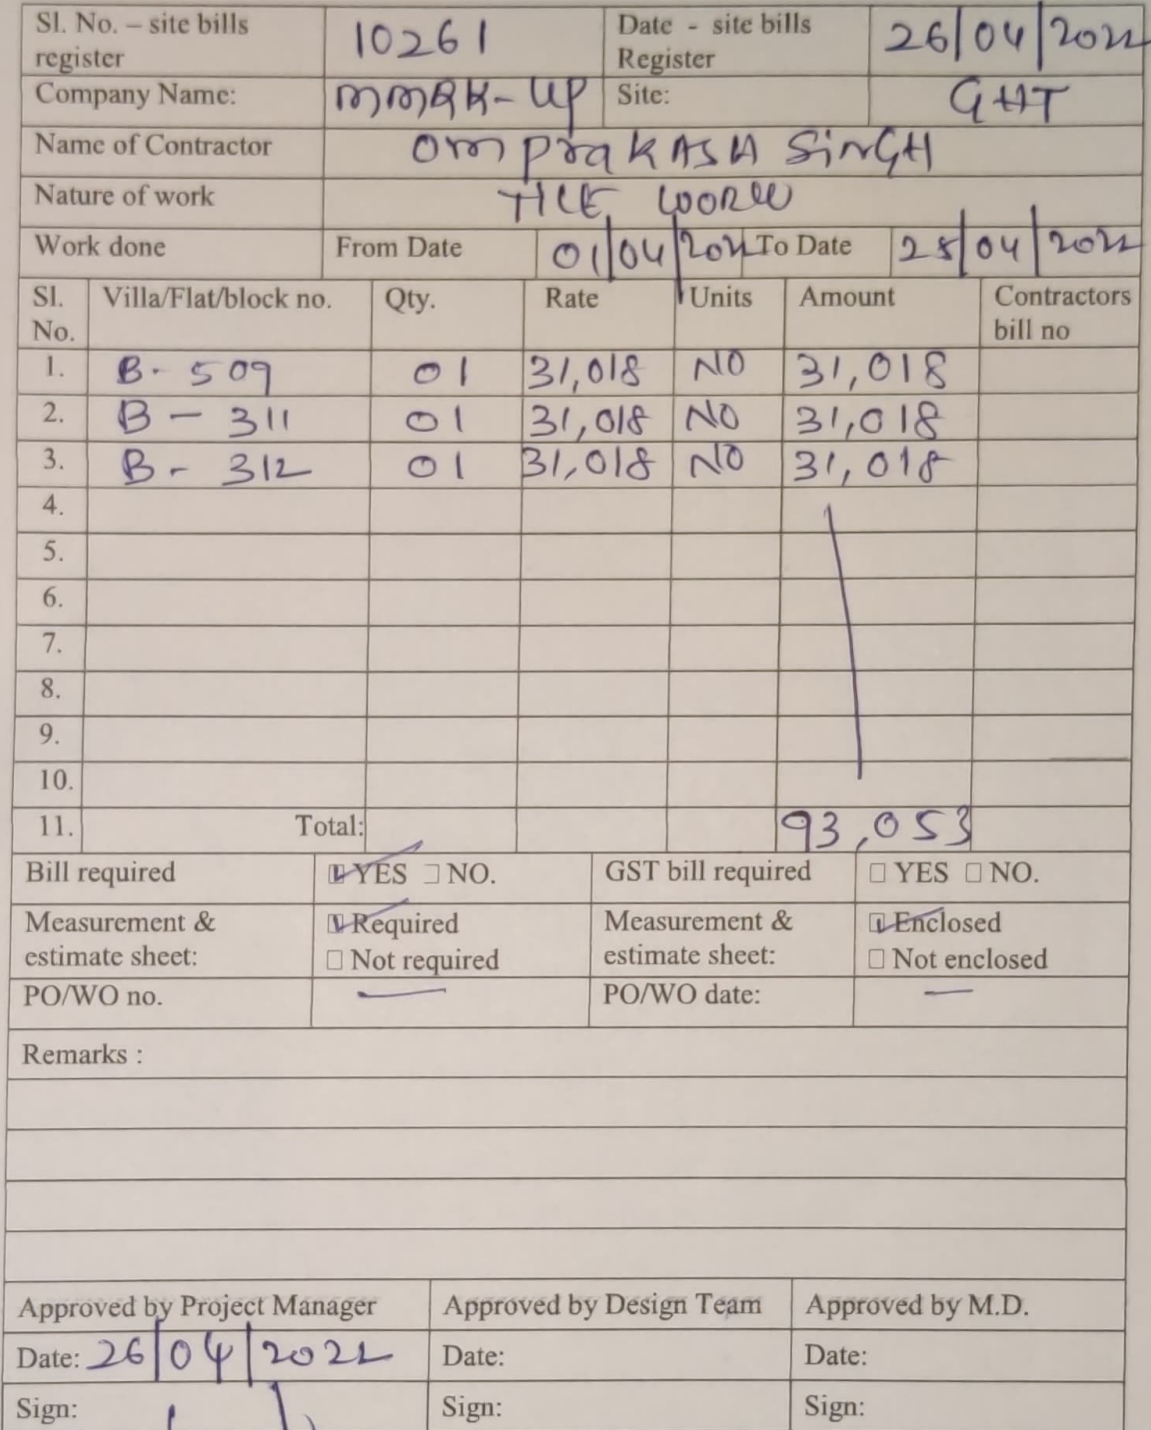 Sl. No. – site bills register 10261 Date - site bills Register 26/04/2022
Company Name: MMRK-UP Site: GHT
Name of Contractor OM PraKASH SiNGH
Nature of work TILE WORK
Work done From Date 01/04/2022 To Date 25/04/2022
Sl. No. Villa/Flat/block no. Qty. Rate Units Amount Contractors bill no
1. B- 509 01 31,018 NO 31,018
2. B - 311 01 31,018 NO 31,018
3. B - 312 01 31,018 NO 31,018
4.
5.
6.
7.
8.
9.
10.
11. Total: 93,053
Bill required YES NO. GST bill required YES NO.
Measurement & estimate sheet: Required Not required Measurement & estimate sheet: Enclosed Not enclosed
PO/WO no. — PO/WO date: —
Remarks :
Approved by Project Manager Approved by Design Team Approved by M.D.
Date: 26/04/2022 Date: Date:
Sign: Sign: Sign: